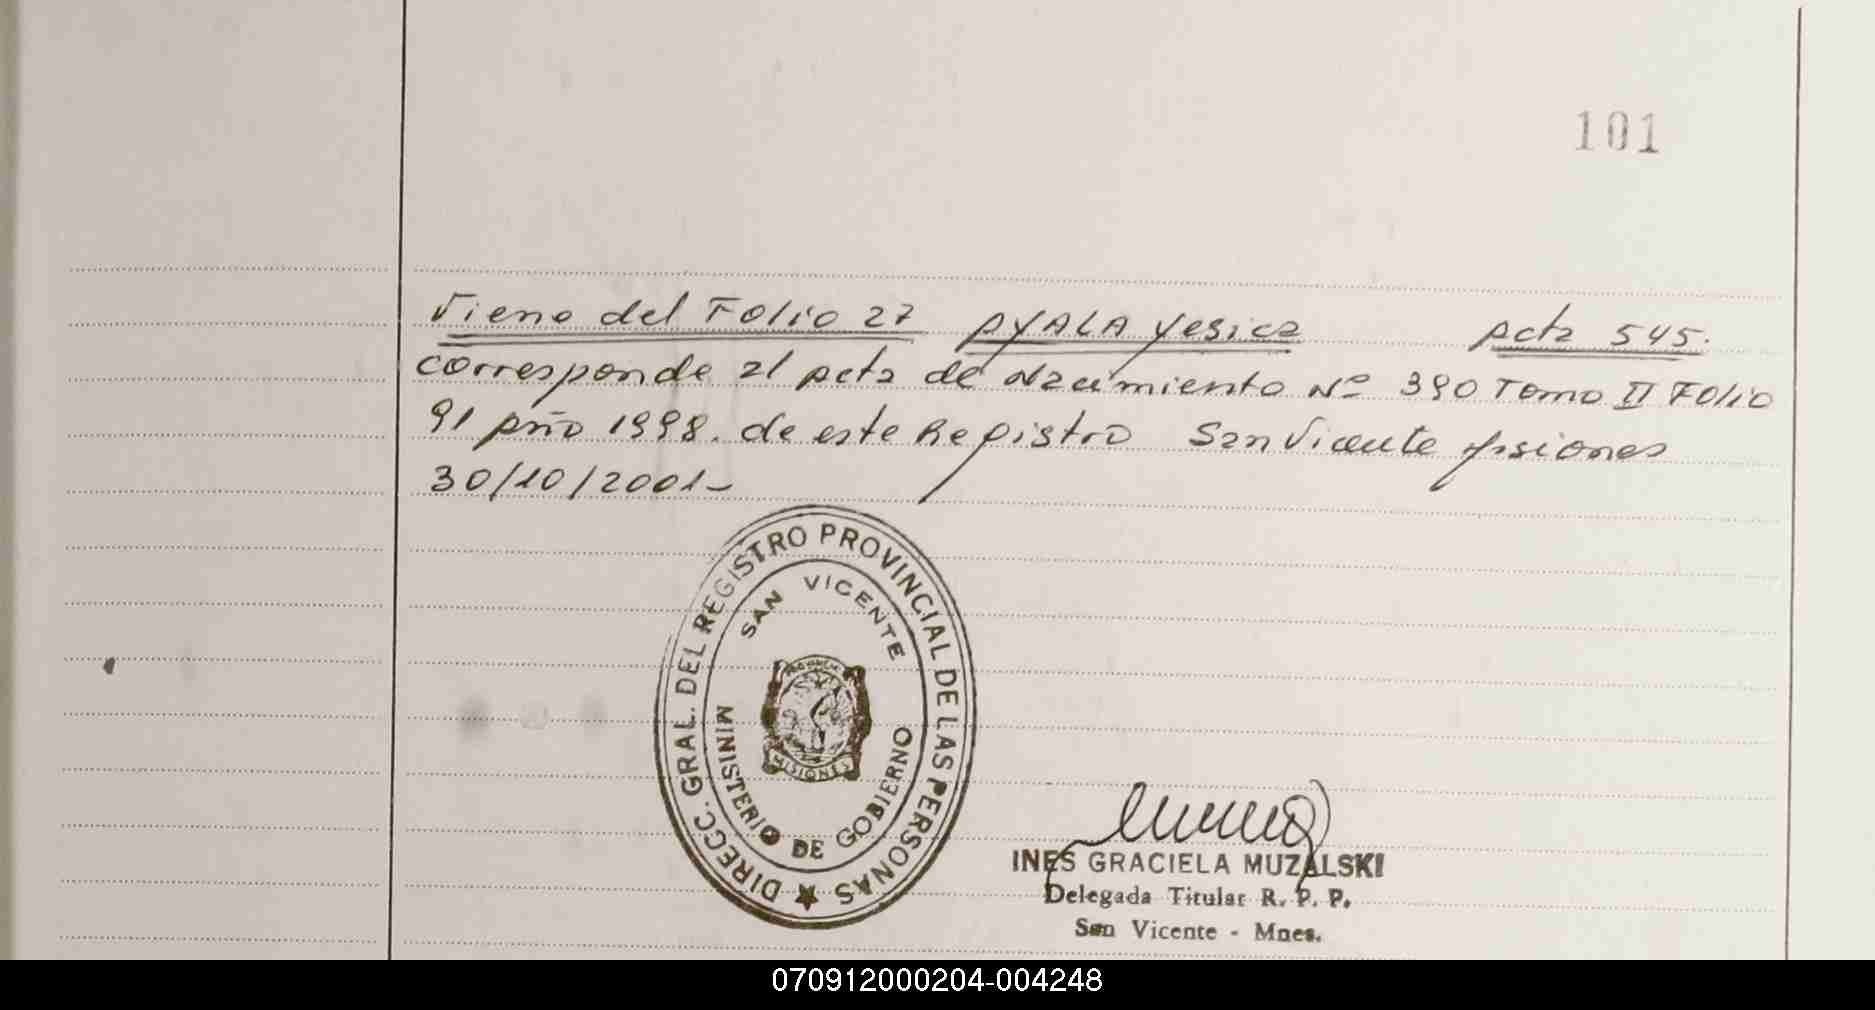 101
Viene del Folio 27 AYALA Yesica Acta 545.
corresponde al Acta de Nacimiento Nº 390 Tomo II Folio
91 Año 1998. de este Registro San Vicente Misiones
30/10/2001-
DIRECC. GRAL. DEL REGISTRO PROVINCIAL DE LAS PERSONAS
SAN VICENTE
PROVINCIA
MISIONES
MINISTERIO DE GOBIERNO
INES GRACIELA MUZALSKI
Delegada Titular R. P. P.
San Vicente - Mnes.
070912000204-004248